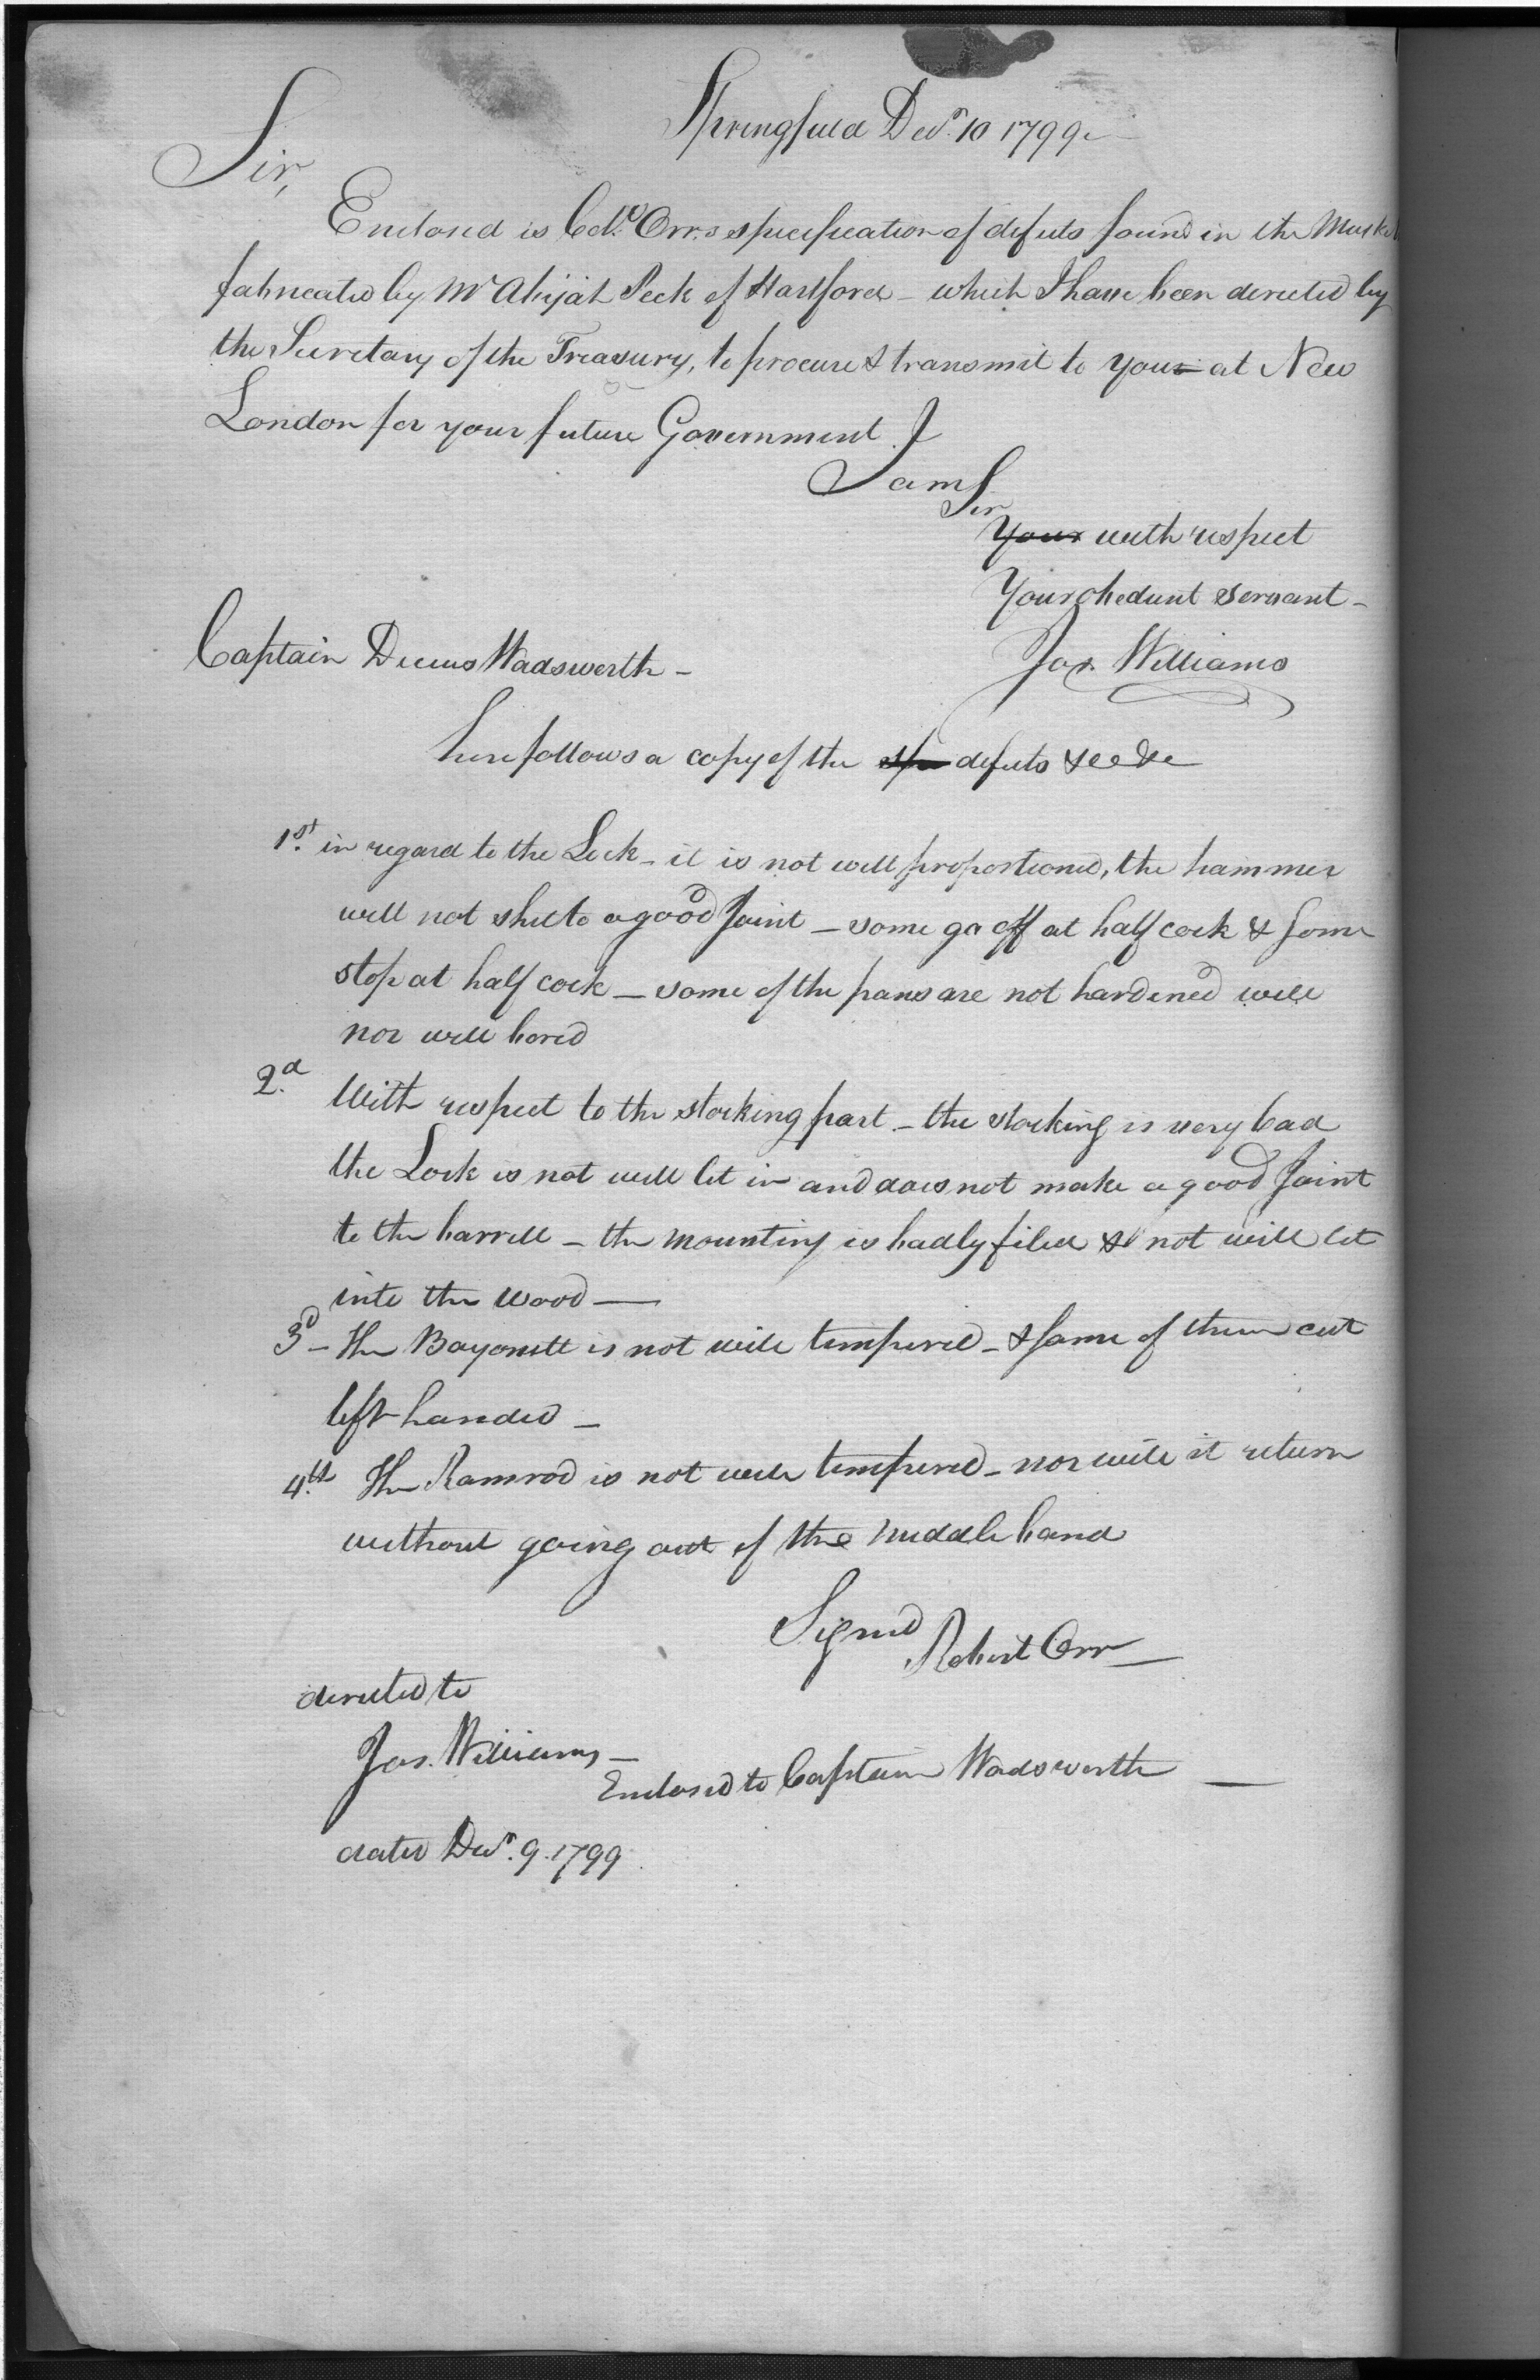 Springfield Decr. 10 1799
Sir,
Enclosed is Colo. Orr,s specification of defects found in the Musket
fabricated by Mr Abijah Peck of Hartford - which I have been directed by
the Secretary of the Treasury, to procure & transmit to your at New
London for your future Government. I
I am
Sir
Your with respect
Your obedient servant -
Captain Decius Wadsworth -
Jos. Williams
here follows a copy of the spe defects &c &c
1st. in regard to the Lock - it is not well proportioned, the hammer
will not shutto a good Joint - some go off at half cock & some
stop at half cock - some of the pans are not hardened well
nor well bored
2.d With respect to the stocking part - the stocking is very bad
the Lock is not well let in and does not make a good Joint
to the barrell - the mounting is badly filed & not well let
into the wood -
3d - The Bayonett is not well tempered - & some of them cut
left handed -
4.th The Ramrod is not well tempered - nor will it return
without going out of the middle band
Signed
Robert Orr -
directed to
Jos. Williams -
Enclosed to Captain Wadsworth -
dated Decr. 9. 1799